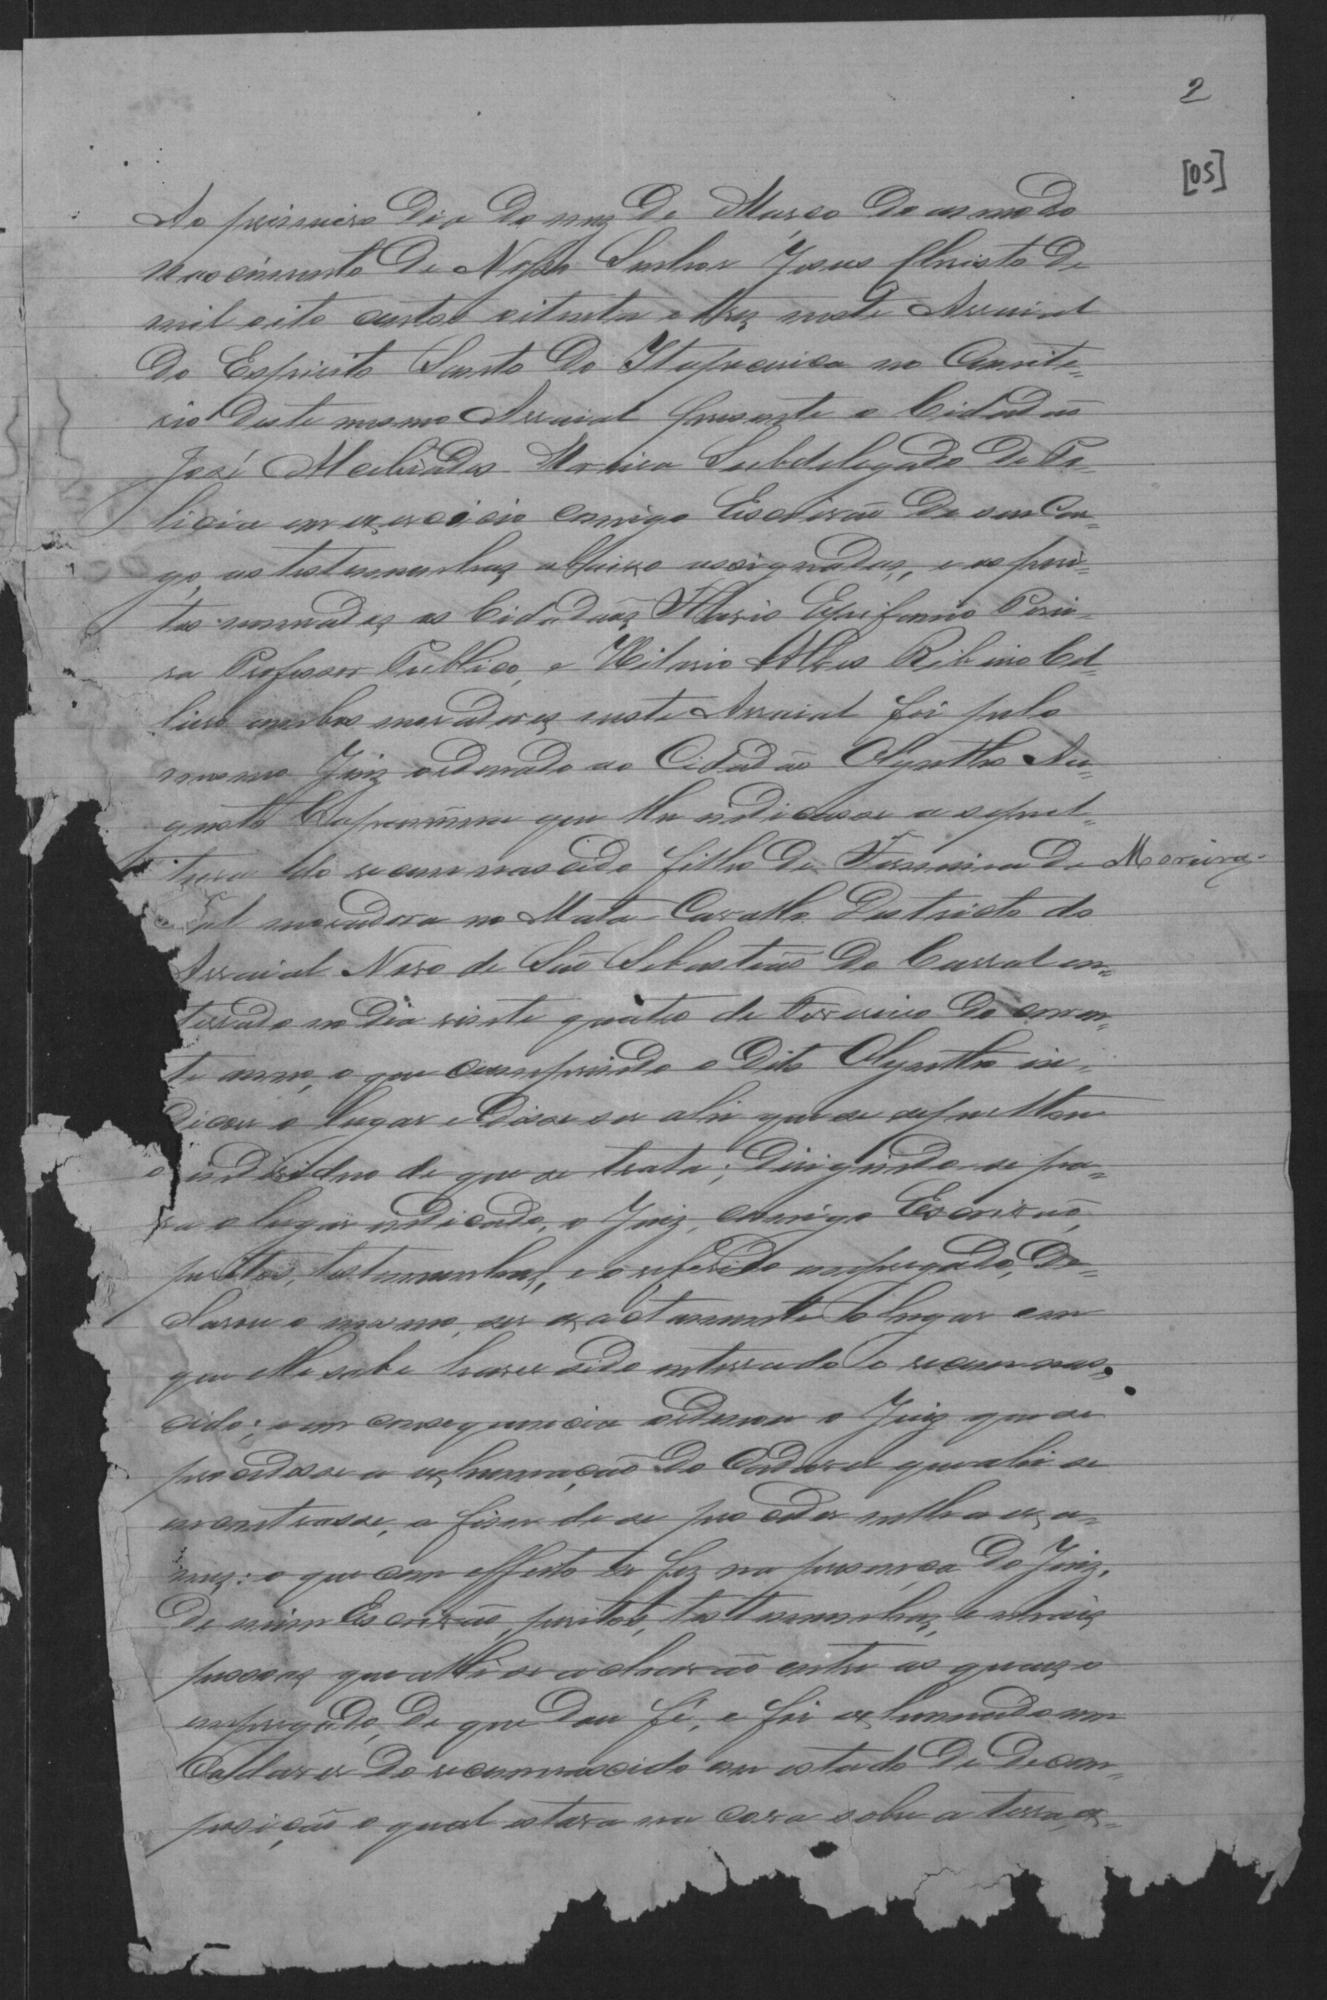 2
[05]
Ao primeiro dia do mez de Março do anno do
nascimento de Nosso Senhor Jesus Christo de
mil oito centos oitenta e trez neste Arraial
do Espirito Santo do Itapecerica no Cemite=
rio deste mesmo Arraial presente o Cidadão
José Melciades Subdelegado de Po=
licia em exercicio comigo Escrivão de seu Car=
go, as testemunhas abaixo assignadas, e os peri=
tos nomiados os Cidadãos Epifanio Perei=
ra Professor Publico, e Hilario Alves Ribeiro
ambos moradores neste Arraial foi pelo
mesmo Juiz ordenado ao Cidadão Olyntho Au=
gusto que lhe indicasse a sepul=
tura do recemnascido filho de Firmina de Moraes
tal moradora no Mata Cavallo Districto do
Arraial Novo de São Sebastião do Curral en=
terrado no dia vinte quatro de Fevereiro do corren=
te anno, o que cumprindo o dito Olyntho in=
dicou o lugar e disse ser alli que se sepultou
o individuo de que se trata; dirigindo-se pa=
ra o lugar indicado, o Juiz, comigo Escrivão,
peritos, testemunhas, e o referido empregado, de=
clarou o mesmo, ser exactamente o lugar em
que elle sabe haver sido enterrado o recemnas=
cido; e em consequencia ordenou o Juiz que se
procedesse a exhumação do Cadaver que alli se
encontrasse, a fim de se proceder nelle a exa=
mes: o que com effeito se fez na presença do Juiz,
de mim Escrivão, peritos, testemunhas, e mais
pessoas que alli se acharão entre as quaes o
empregado, de que dou fé, e foi exhumado um
Cadaver do recemnascido em estado de decom=
posição o qual estava na cova sobre a terra, ex=